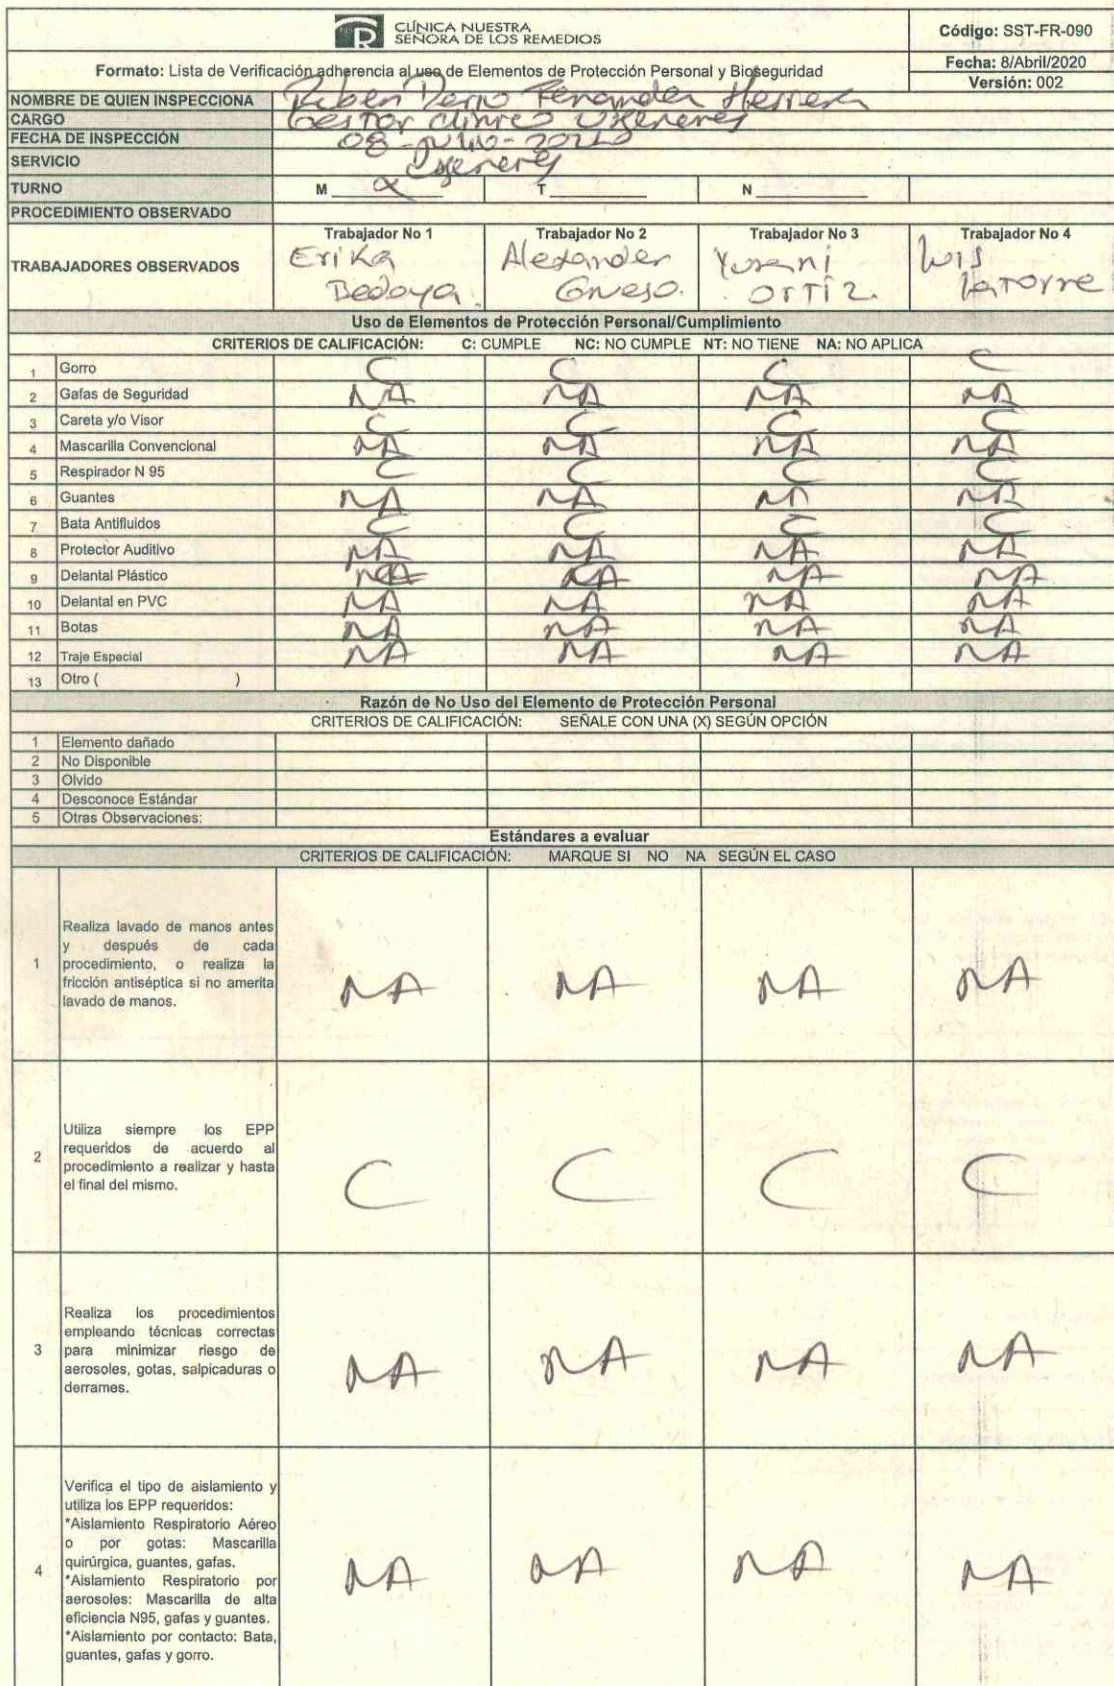 CLÍNICA NUESTRA
SEÑORA DE LOS REMEDIOS
Código: SST-FR-090
Formato: Lista de Verificación adherencia al uso de Elementos de Protección Personal y Bioseguridad
Fecha: 8/Abril/2020
Versión: 002
NOMBRE DE QUIEN INSPECCIONA Ruben Dario Fernandez Herrera
CARGO Gestor clinico
FECHA DE INSPECCIÓN 08-Julio-
SERVICIO
TURNO M X T N
PROCEDIMIENTO OBSERVADO
TRABAJADORES OBSERVADOS
Trabajador No 1 Trabajador No 2 Trabajador No 3 Trabajador No 4
Erika Alexander Yurani Luis
Bedoya. Grueso. ORTIZ. Latorre
Uso de Elementos de Protección Personal/Cumplimiento
CRITERIOS DE CALIFICACIÓN: C: CUMPLE NC: NO CUMPLE NT: NO TIENE NA: NO APLICA
1 Gorro C C C C
2 Gafas de Seguridad NA NA NA NA
3 Careta y/o Visor C C C C
4 Mascarilla Convencional NA NA NA NA
5 Respirador N 95 C C C C
6 Guantes NA NA NA NA
7 Bata Antifluidos C C C C
8 Protector Auditivo NA NA NA NA
9 Delantal Plástico NA NA NA NA
10 Delantal en PVC NA NA NA NA
11 Botas NA NA NA NA
12 Traje Especial NA NA NA NA
13 Otro ( )
Razón de No Uso del Elemento de Protección Personal
CRITERIOS DE CALIFICACIÓN: SEÑALE CON UNA (X) SEGÚN OPCIÓN
1 Elemento dañado
2 No Disponible
3 Olvido
4 Desconoce Estándar
5 Otras Observaciones:
Estándares a evaluar
CRITERIOS DE CALIFICACIÓN: MARQUE SI NO NA SEGÚN EL CASO
1
Realiza lavado de manos antes
y después de cada
procedimiento, o realiza la
fricción antiséptica si no amerita
lavado de manos.
NA NA NA NA
2
Utiliza siempre los EPP
requeridos de acuerdo al
procedimiento a realizar y hasta
el final del mismo.
C C C C
3
Realiza los procedimientos
empleando técnicas correctas
para minimizar riesgo de
aerosoles, gotas, salpicaduras o
derrames.
NA NA NA NA
4
Verifica el tipo de aislamiento y
utiliza los EPP requeridos:
*Aislamiento Respiratorio Aéreo
o por gotas: Mascarilla
quirúrgica, guantes, gafas.
*Aislamiento Respiratorio por
aerosoles: Mascarilla de alta
eficiencia N95, gafas y guantes.
*Aislamiento por contacto: Bata,
guantes, gafas y gorro.
NA NA NA NA